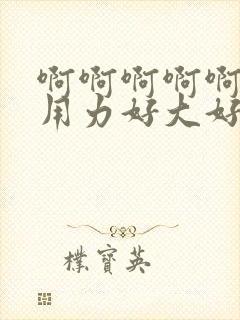 啊啊啊啊啊
用力好大好
樸寶英